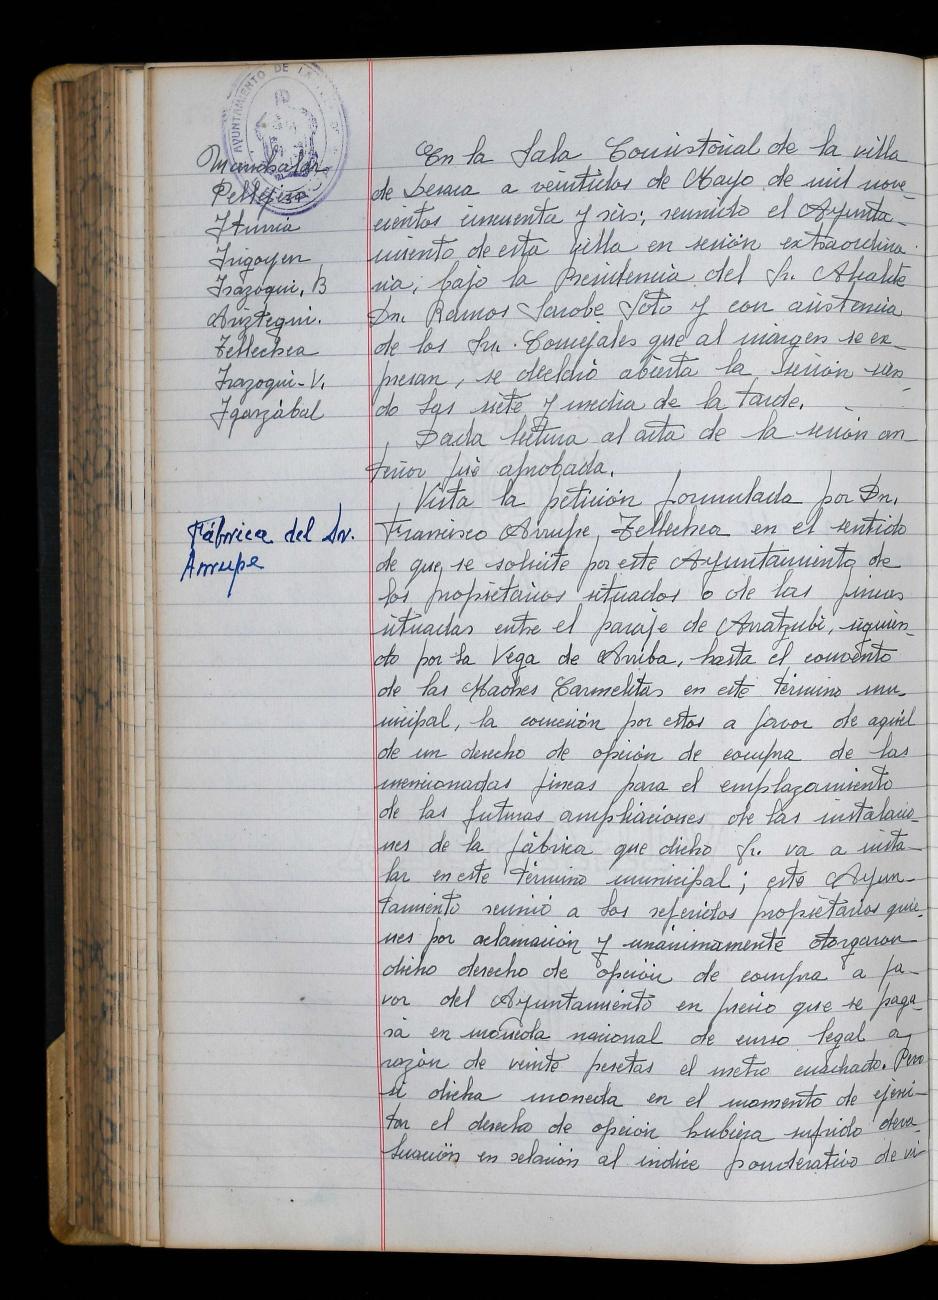 AYUNTAMIENTO DE LA
Marichalar
Pellejero
Iturria
Irigoyen
Irazoqui, B
Ariztegui.
Tellechea
Irazoqui-V.
Igarzábal
En la Sala Consistorial de la villa
de Lesaca a veintidos de Mayo de mil nove-
cientos cincuenta y seis; reunido el Ayunta-
miento de esta villa en sesión extraordina-
ria, bajo la Presidencia del Sr. Alcalde
Dn. Ramos Sarobe Soto y con asistencia
de los Srs. Concejales que al margen se ex-
presan, se declaró abierta la sesión sien-
do las siete y media de la tarde.
Dada lectura al acta de la sesión an-
terior fué aprobada.
Fábrica del Sr.
Arrupe
Vista la petición formulada por Dn.
Francisco Arrupe Tellechea en el sentido
de que se solicite por este Ayuntamiento de
los propietarios situados o de las fincas
situadas entre el paraje de Arratzubi, siguien-
do por la Vega de Arriba, hasta el convento
de las Madres Carmelitas en este término mu-
nicipal, la concesión por estos a favor de aquel
de un derecho de opción de compra de las
mencionadas fincas para el emplazamiento
de las futuras ampliaciones de las instalacio-
nes de la fábrica que dicho Sr. va a insta-
lar en este término municipal; este Ayun-
tamiento reunió a los referidos propietarios quie-
nes por aclamación y unánimamente otorgaron
dicho derecho de opción de compra a fa-
vor del Ayuntamiento en precio que se paga-
rá en moneda nacional de curso legal a
razón de veinte pesetas el metro cuadrado. Pero
si dicha moneda en el momento de ejerci-
tar el derecho de opción hubiera sufrido deva-
luación en relación al indice ponderativo de vi-